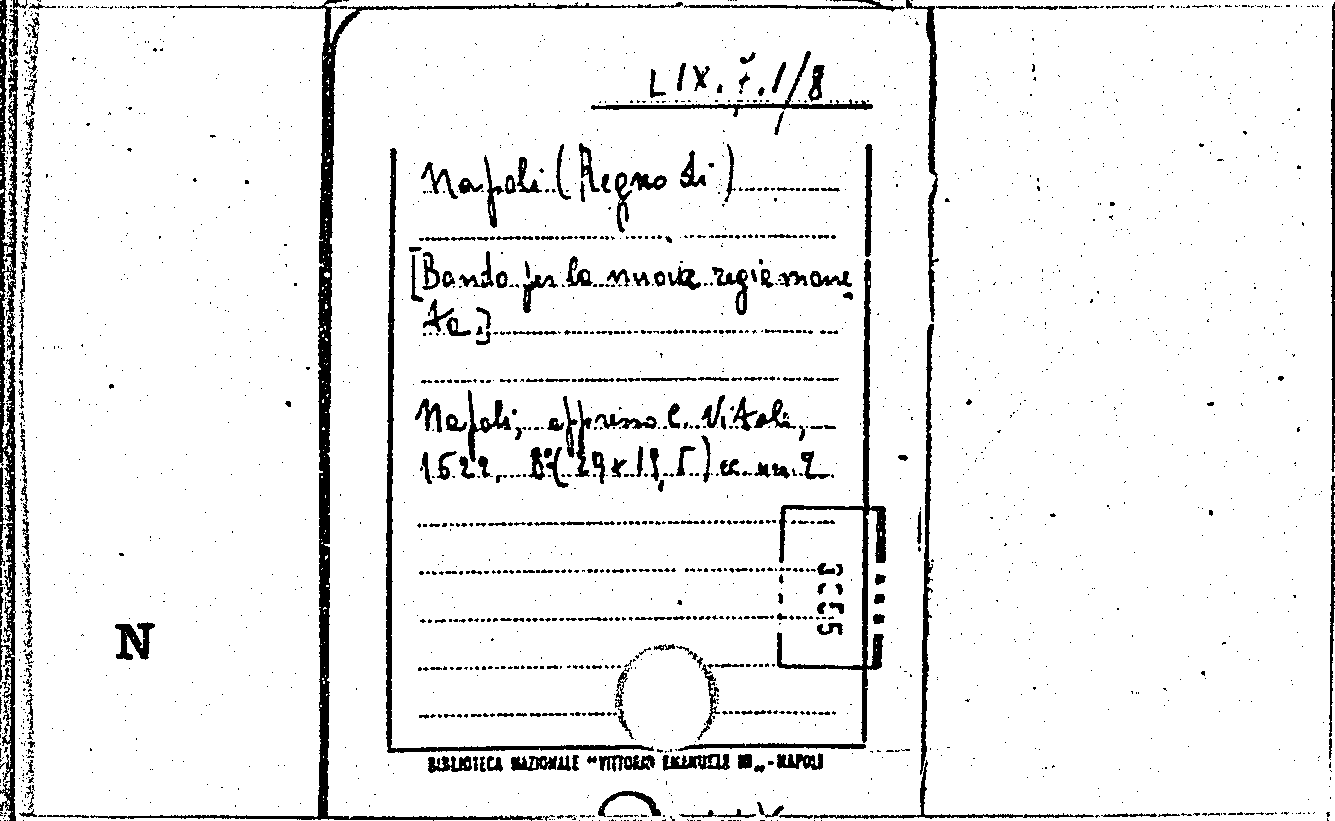 LIX. 7. 1/8
Napoli (Regno di)
[Bando per la nuova regia mone
ta.]
Napoli, appresso C. Vitali,
1622. 8° (29x19,5) cc. nn. 2
N
BIBLIOTECA NAZIONALE "VITTORIO EMANUELE III„ - NAPOLI